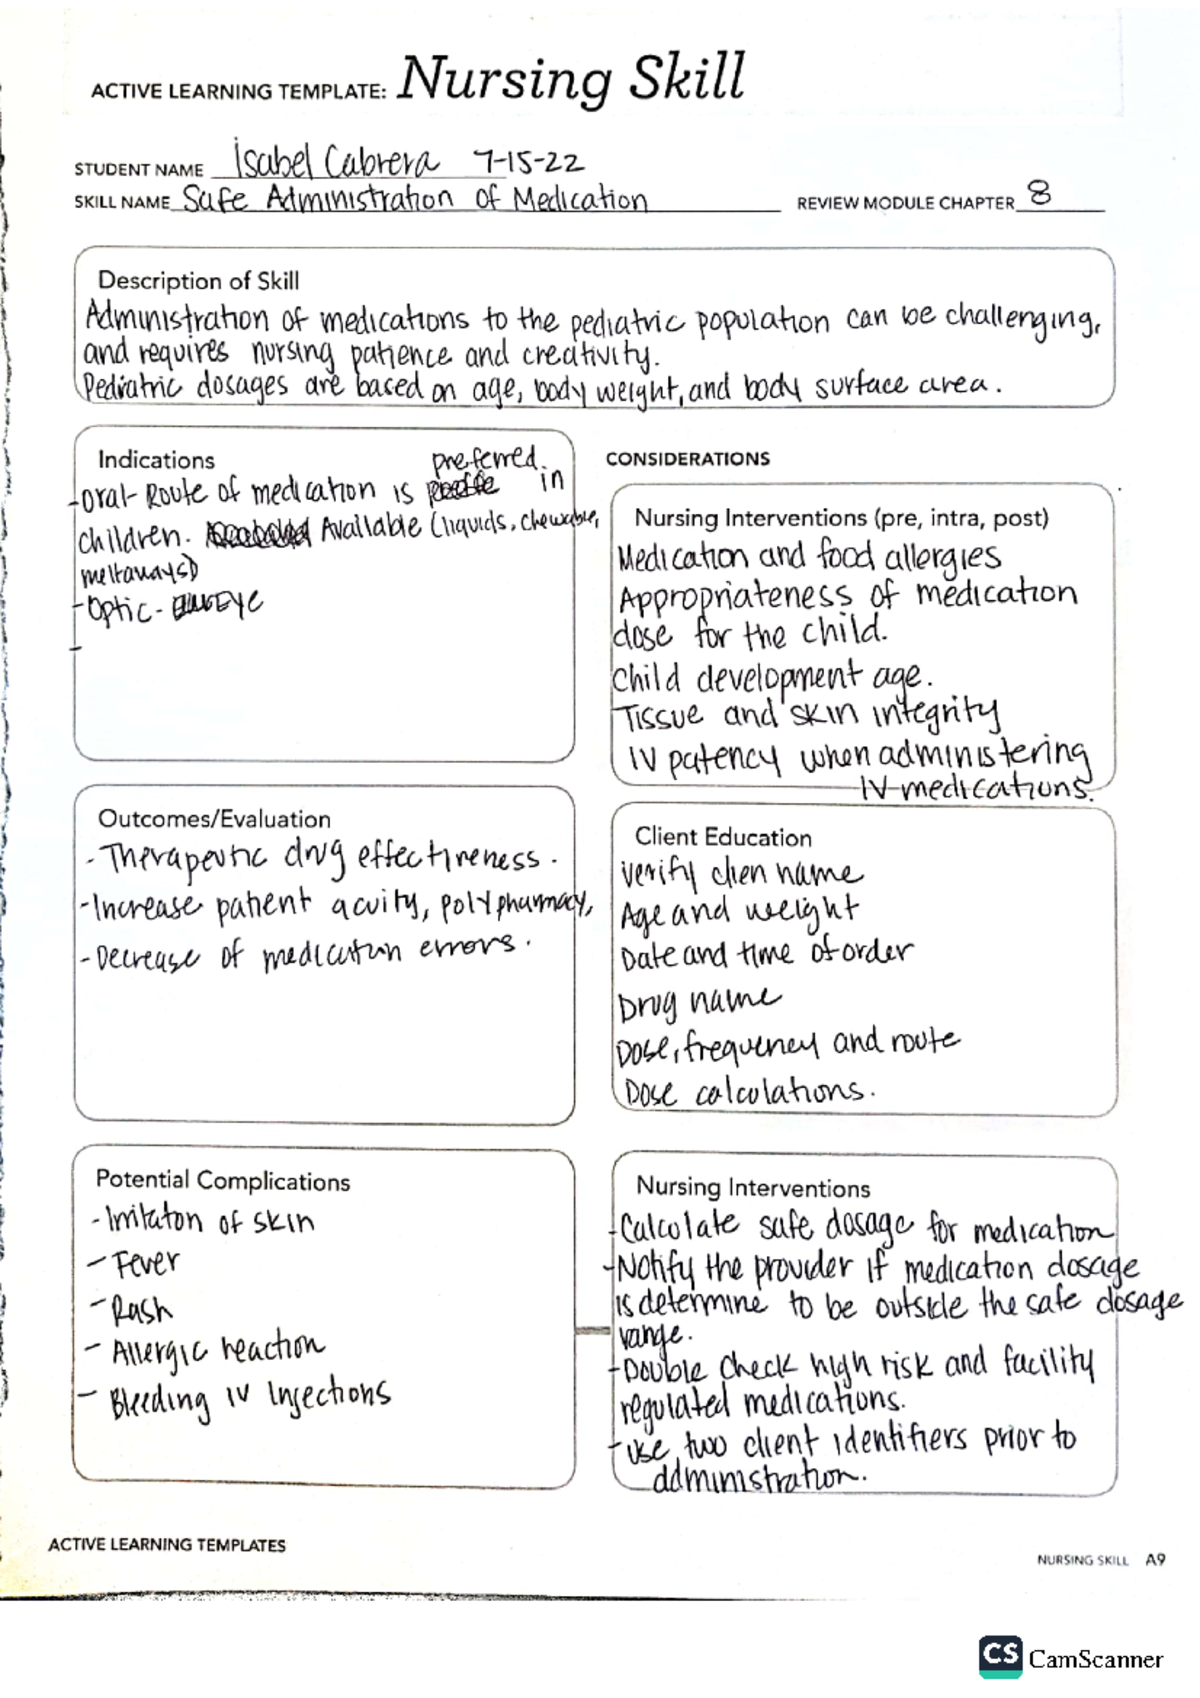 ACTIVE LEARNING TEMPLATE: Nursing Skill
STUDENT NAME Isabel Cabrera 7-15-22
SKILL NAME Safe Administration of Medication REVIEW MODULE CHAPTER 8
Description of Skill
Administration of medications to the pediatric population can be challenging,
and requires nursing patience and creativity.
Pediatric dosages are based on age, body weight, and body surface area.
Indications
preferred.
-Oral-Route of medication is in
children. Available (liquids, chewable,
meltaways)
-Optic- Eye
-
Outcomes/Evaluation
- Therapeutic drug effectiveness.
-Increase patient acuity, polypharmacy,
-Decrease of medication errors.
Potential Complications
-Irritaton of skin
- Fever
- Rash
- Allergic reaction
- Bleeding IV Injections
CONSIDERATIONS
Nursing Interventions (pre, intra, post)
Medication and food allergies
Appropriateness of medication
dose for the child.
Child development age.
Tissue and skin integrity
IV patency when administering
IV medications.
Client Education
Verify clien name
Age and weight
Date and time of order
Drug name
Dose, frequency and route
Dose calculations.
Nursing Interventions
-Calculate safe dosage for medication
-Notify the provider if medication dosage
is determine to be outside the safe dosage
range.
-Double check high risk and facility
regulated medications.
-use two client identifiers prior to
administration.
ACTIVE LEARNING TEMPLATES
NURSING SKILL A9
CS CamScanner